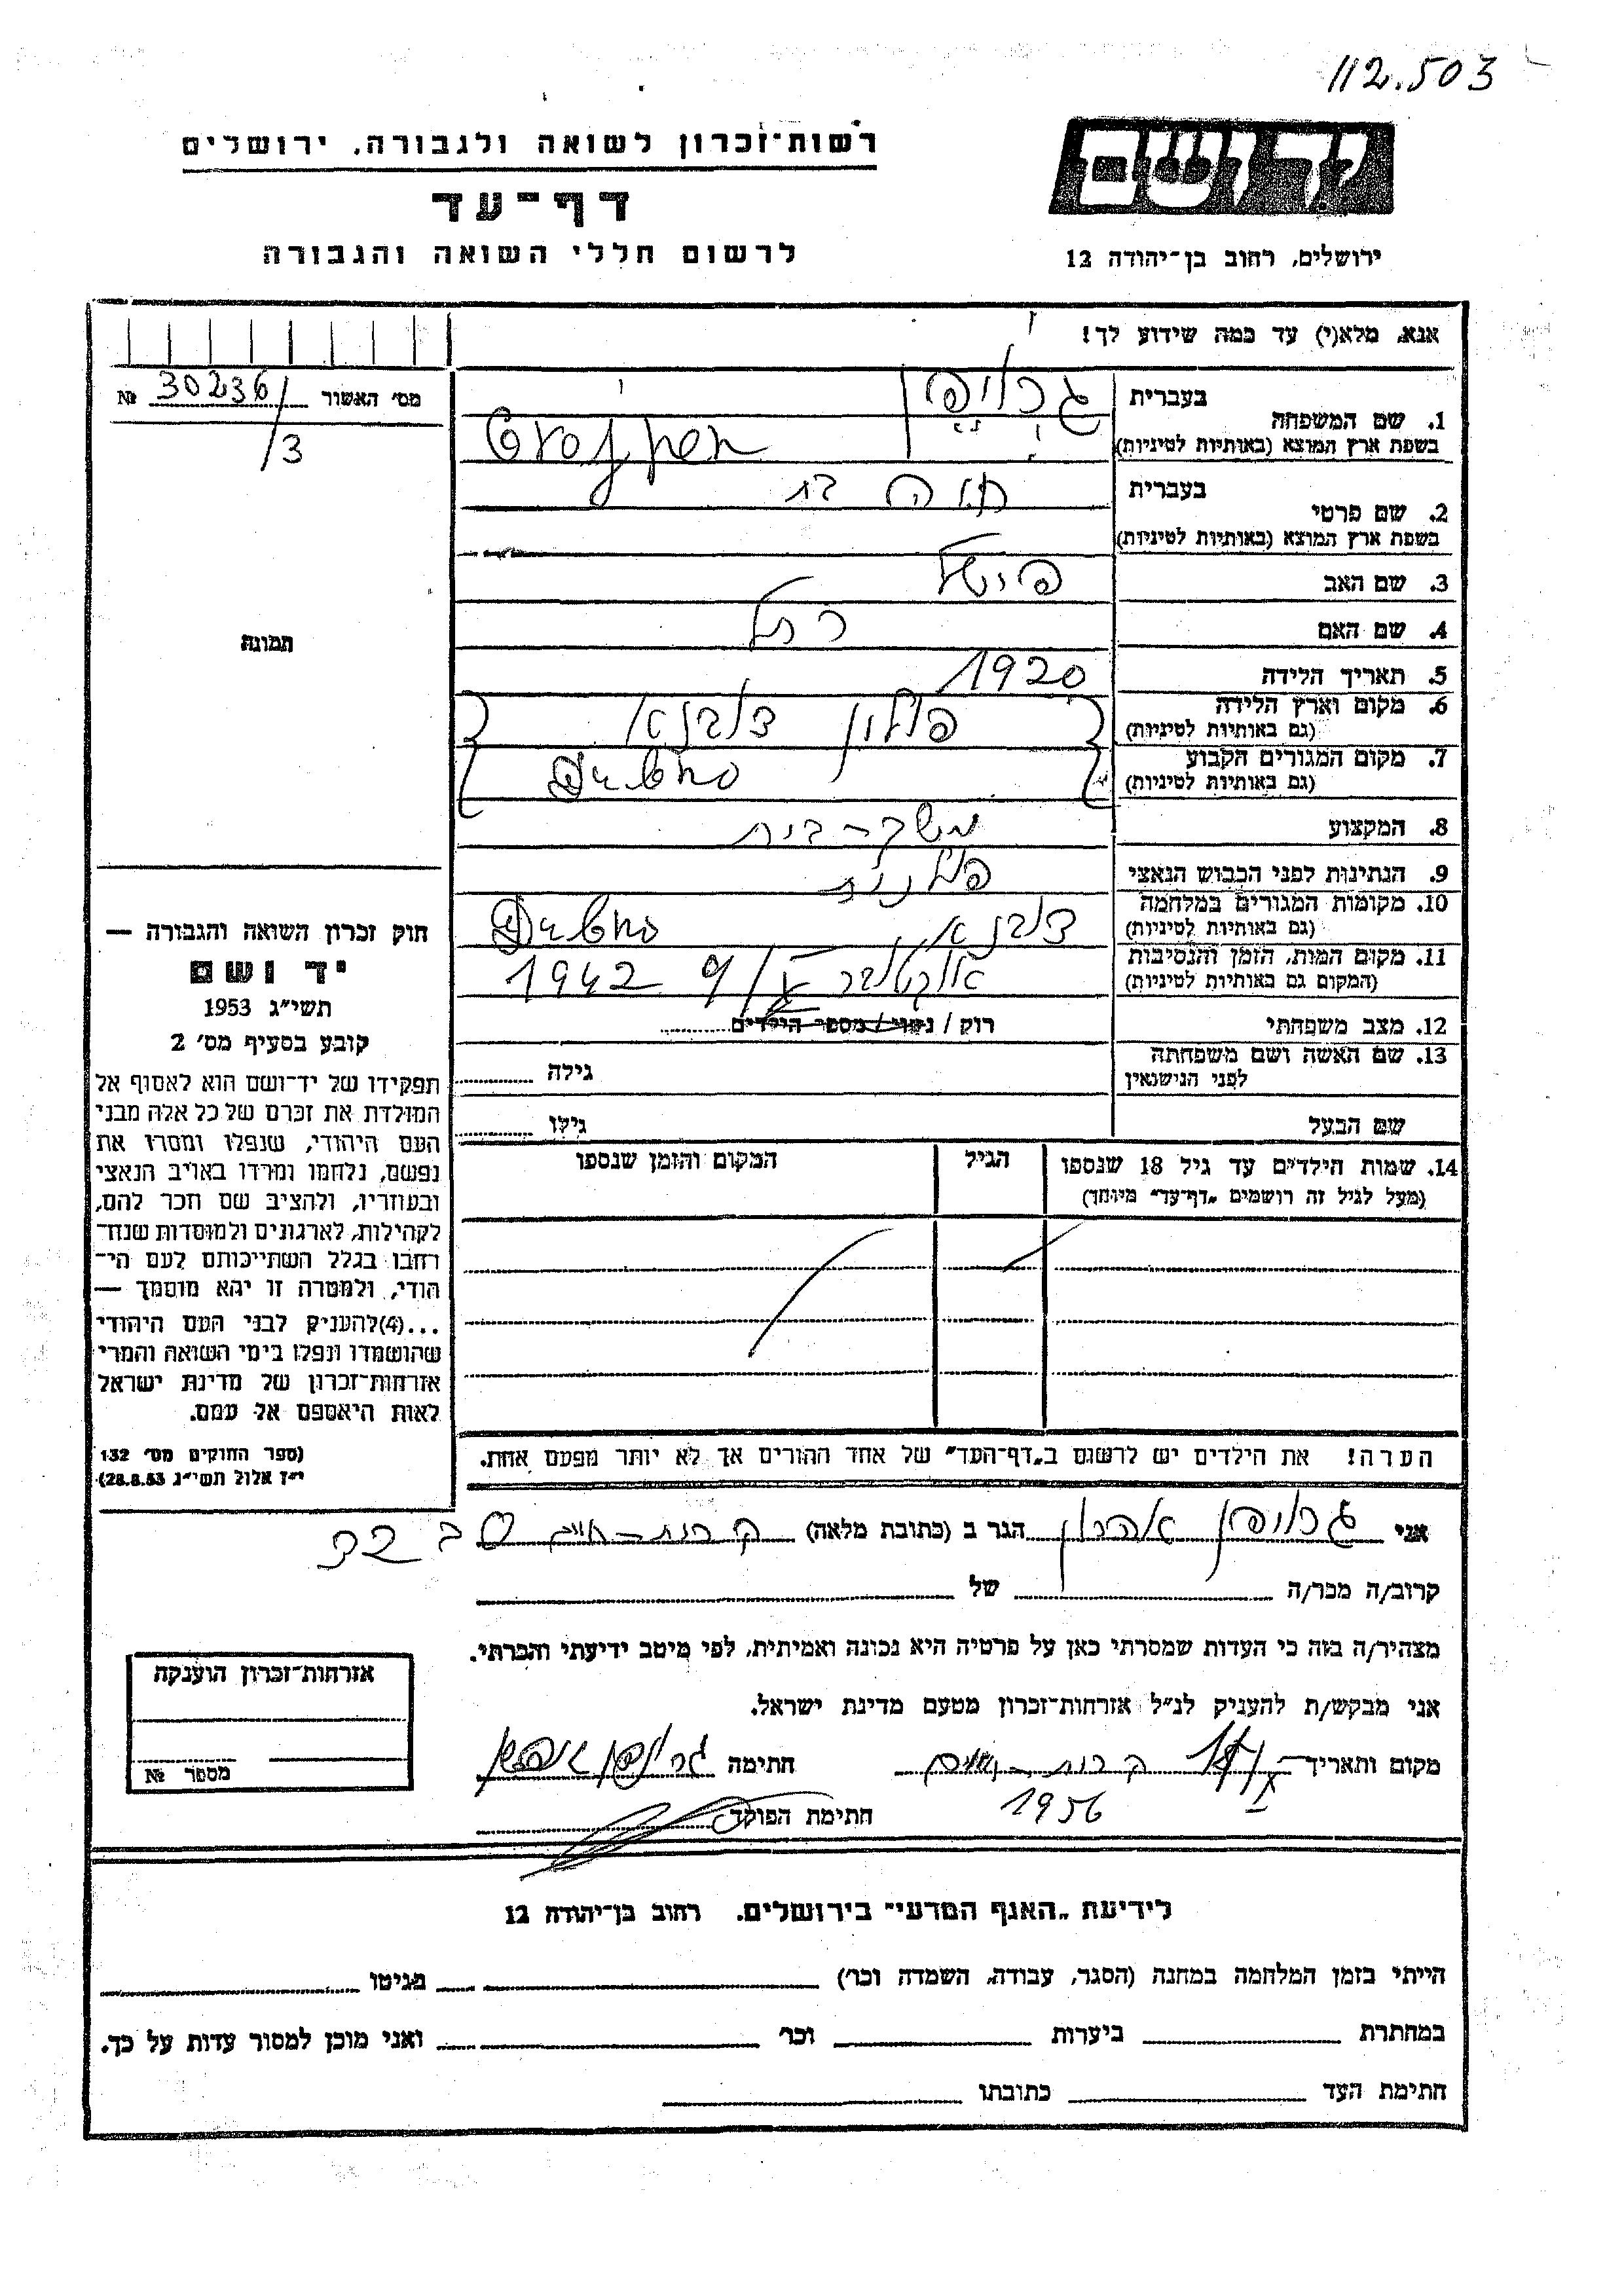 112.503
ידושם
רשות־זכרון לשואה ולגבורה, ירושלים
דף־עד
לרשום חללי השואה והגבורה
ירושלים, רחוב בן־יהודה 12
אנא, מלא(י) עד כמה שידוע לך!
מס׳ האשור № 30236/3
1. שם המשפחה בעברית
בשפת ארץ המוצא (באותיות לטיניות)
2. שם פרטי בעברית חוה בת
בשפת ארץ המוצא (באותיות לטיניות)
3. שם האב פישל
4. שם האם רחל
5. תאריך הלידה 1920
6. מקום וארץ הלידה פולין דובנא
(גם באותיות לטיניות)
7. מקום המגורים הקבוע Dubno
(גם באותיות לטיניות)
8. המקצוע משק־בית
9. הנתינות לפני הכבוש הנאצי פולנית
10. מקומות המגורים במלחמה דובנא Dubno
(גם באותיות לטיניות)
11. מקום המות, הזמן והנסיבות אוקטובר 1942
(המקום גם באותיות לטיניות)
12. מצב משפחתי רוק / נשוי / מספר הילדים
13. שם האשה ושם משפחתה גילה
לפני הנישואין
שם הבעל גילו
14. שמות הילדים עד גיל 18 שנספו הגיל המקום והזמן שנספו
(מעל לגיל זה רושמים „דף־עד” מיוחד)
הערה! את הילדים יש לרשום ב„דף־העד” של אחד ההורים אך לא יותר מפעם אחת.
תמונה
חוק זכרון השואה והגבורה —
יד ושם
תשי״ג 1953
קובע בסעיף מס׳ 2
תפקידו של יד־ושם הוא לאסוף אל
המולדת את זכרם של כל אלה מבני
העם היהודי, שנפלו ומסרו את
נפשם, נלחמו ומרדו באויב הנאצי
ובעוזריו, ולהציב שם וזכר להם,
לקהילות, לארגונים ולמוסדות שנח־
רחבו בגלל השתייכותם לעם הי־
הודי, ולמטרה זו יהא מוסמך —
...(4)להעניק לבני העם היהודי
שהושמדו ונפלו בימי השואה והמרי
אזרחות־זכרון של מדינת ישראל
לאות היאספם אל עמם.
(ספר החוקים מס׳ 132
י״ז אלול תשי״ג 28.8.53)
אני אהרון הגר ב (כתובת מלאה) 32
קרוב/ה מכר/ה של
מצהיר/ה בזה כי העדות שמסרתי כאן על פרטיה היא נכונה ואמיתית, לפי מיטב ידיעתי והכרתי.
אני מבקש/ת להעניק לנ״ל אזרחות־זכרון מטעם מדינת ישראל.
מקום ותאריך 1956 חתימה
חתימת הפוקד
אזרחות־זכרון הוענקה
מספר №
לידיעת „האגף המדעי” בירושלים. רחוב בן־יהודה 12
הייתי בזמן המלחמה במחנה (הסגר, עבודה, השמדה וכו׳) בגיטו
במחתרת ביערות וכו׳ ואני מוכן למסור עדות על כך.
חתימת העד כתובתו